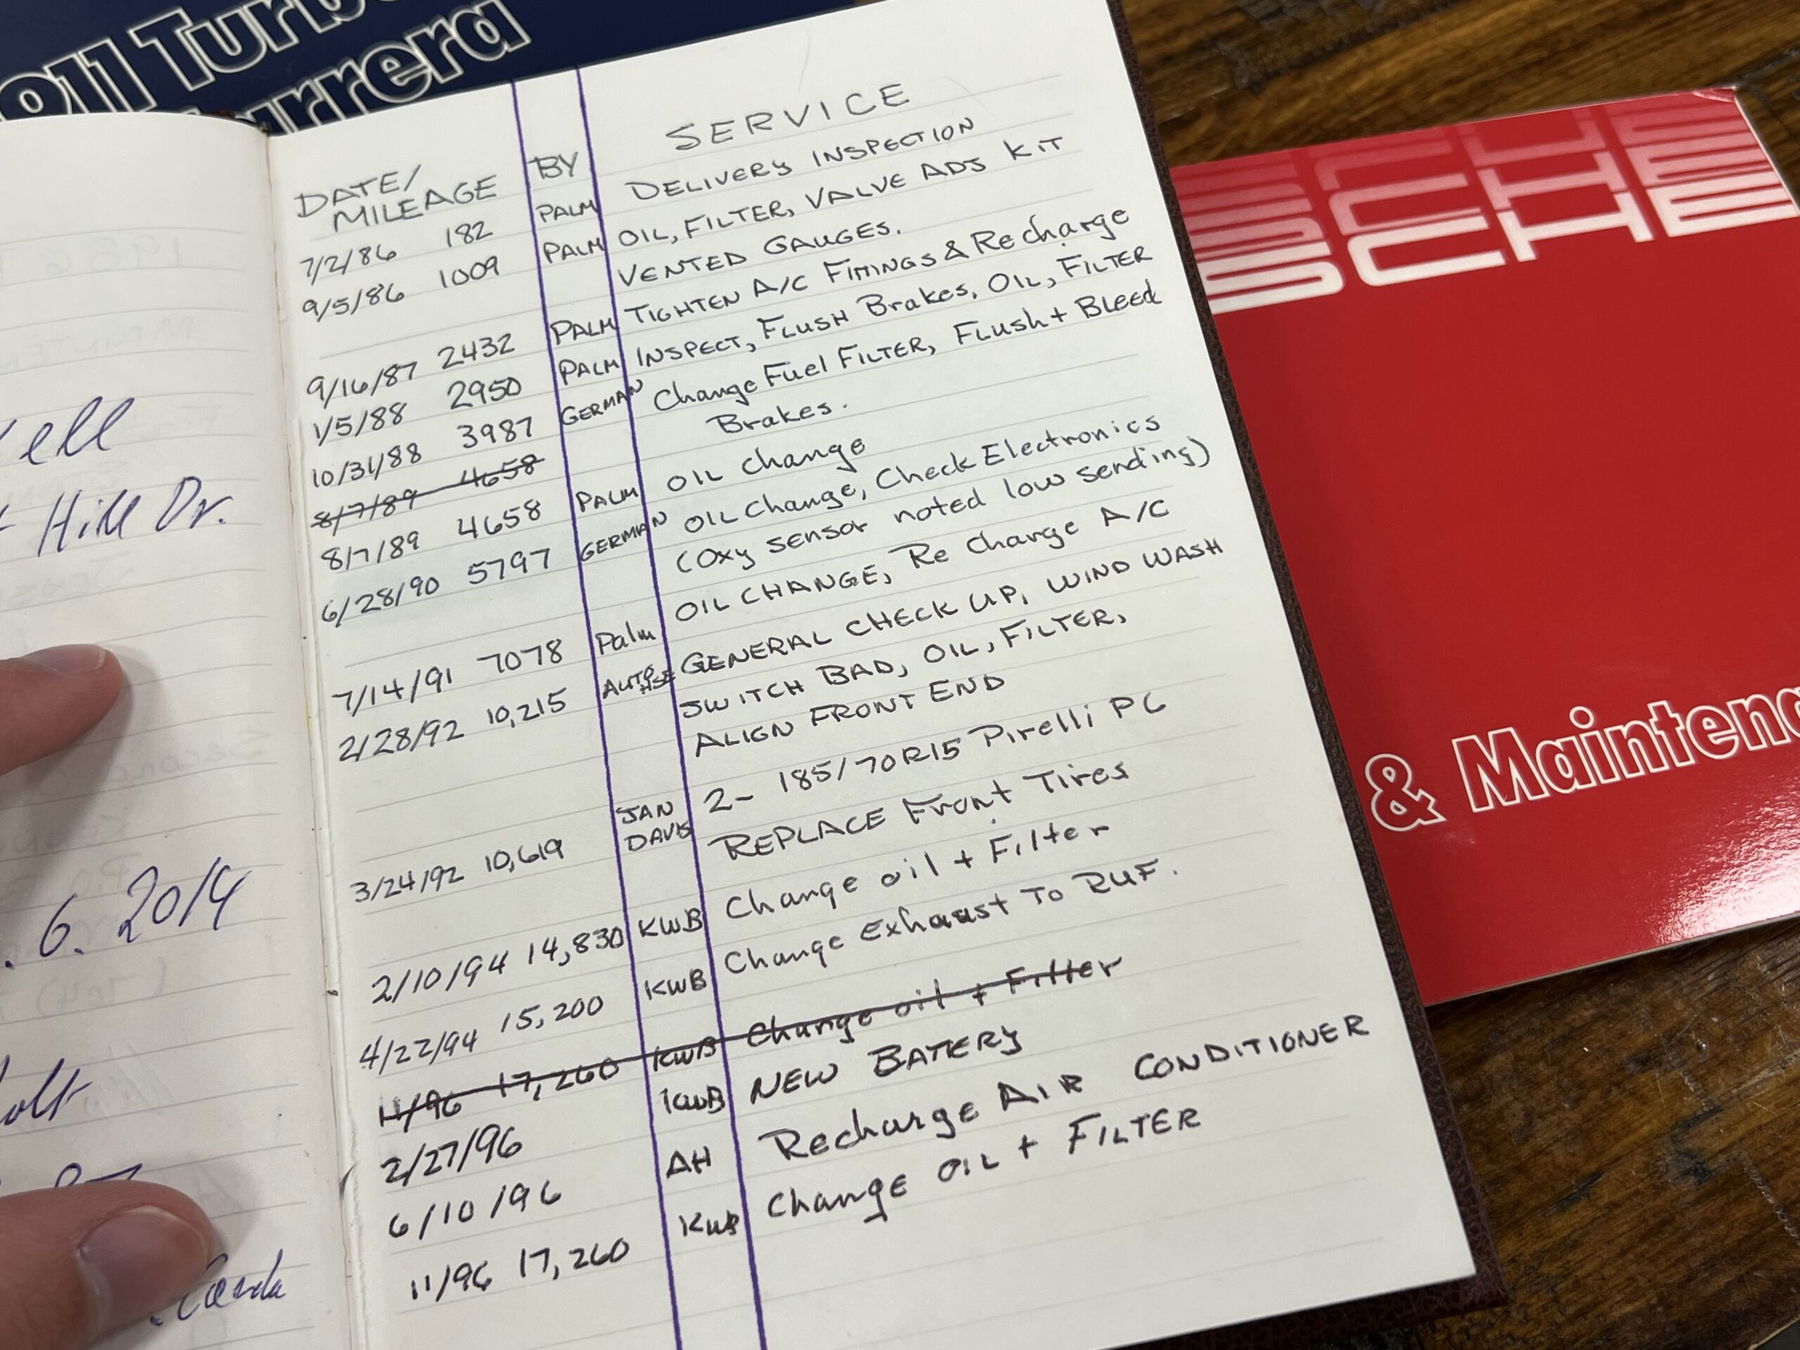 911 Turbo
Carrera
DATE/ MILEAGE BY SERVICE
7/2/86 182 PALM DELIVERY INSPECTION
9/5/86 1009 PALM OIL, FILTER, VALVE ADJ KIT
VENTED GAUGES.
9/16/87 2432 PALM TIGHTEN A/C FITTINGS & Recharge
1/5/88 2950 PALM INSPECT, FLUSH Brakes, OIL, FILTER
10/31/88 3987 GERMAN Change Fuel FILTER, Flush + Bleed
Brakes.
8/7/89 4658
8/7/89 4658 PALM OIL change
6/28/90 5797 GERMAN OIL Change, Check Electronics
(Oxy sensor noted low sending)
7/14/91 7078 Palm OIL CHANGE, Re Charge A/C
2/28/92 10,215 AUTO HSE GENERAL CHECK UP, WIND WASH
SWITCH BAD, OIL, FILTER,
ALIGN FRONT END
3/24/92 10,619 JAN DAVIS 2- 185/70R15 Pirelli P6
REPLACE Front Tires
2/10/94 14,830 KWB Change oil + Filter
4/22/94 15,200 KWB Change Exhaust To RUF.
11/96 17,260 KWB Change oil + Filter
2/27/96 KWB NEW BATERY
6/10/96 AH Recharge AIR CONDITIONER
11/96 17,260 KWB Change OIL + FILTER
ell
Hill Dr.
. 6. 2014
olt
SCHE
& Maintena